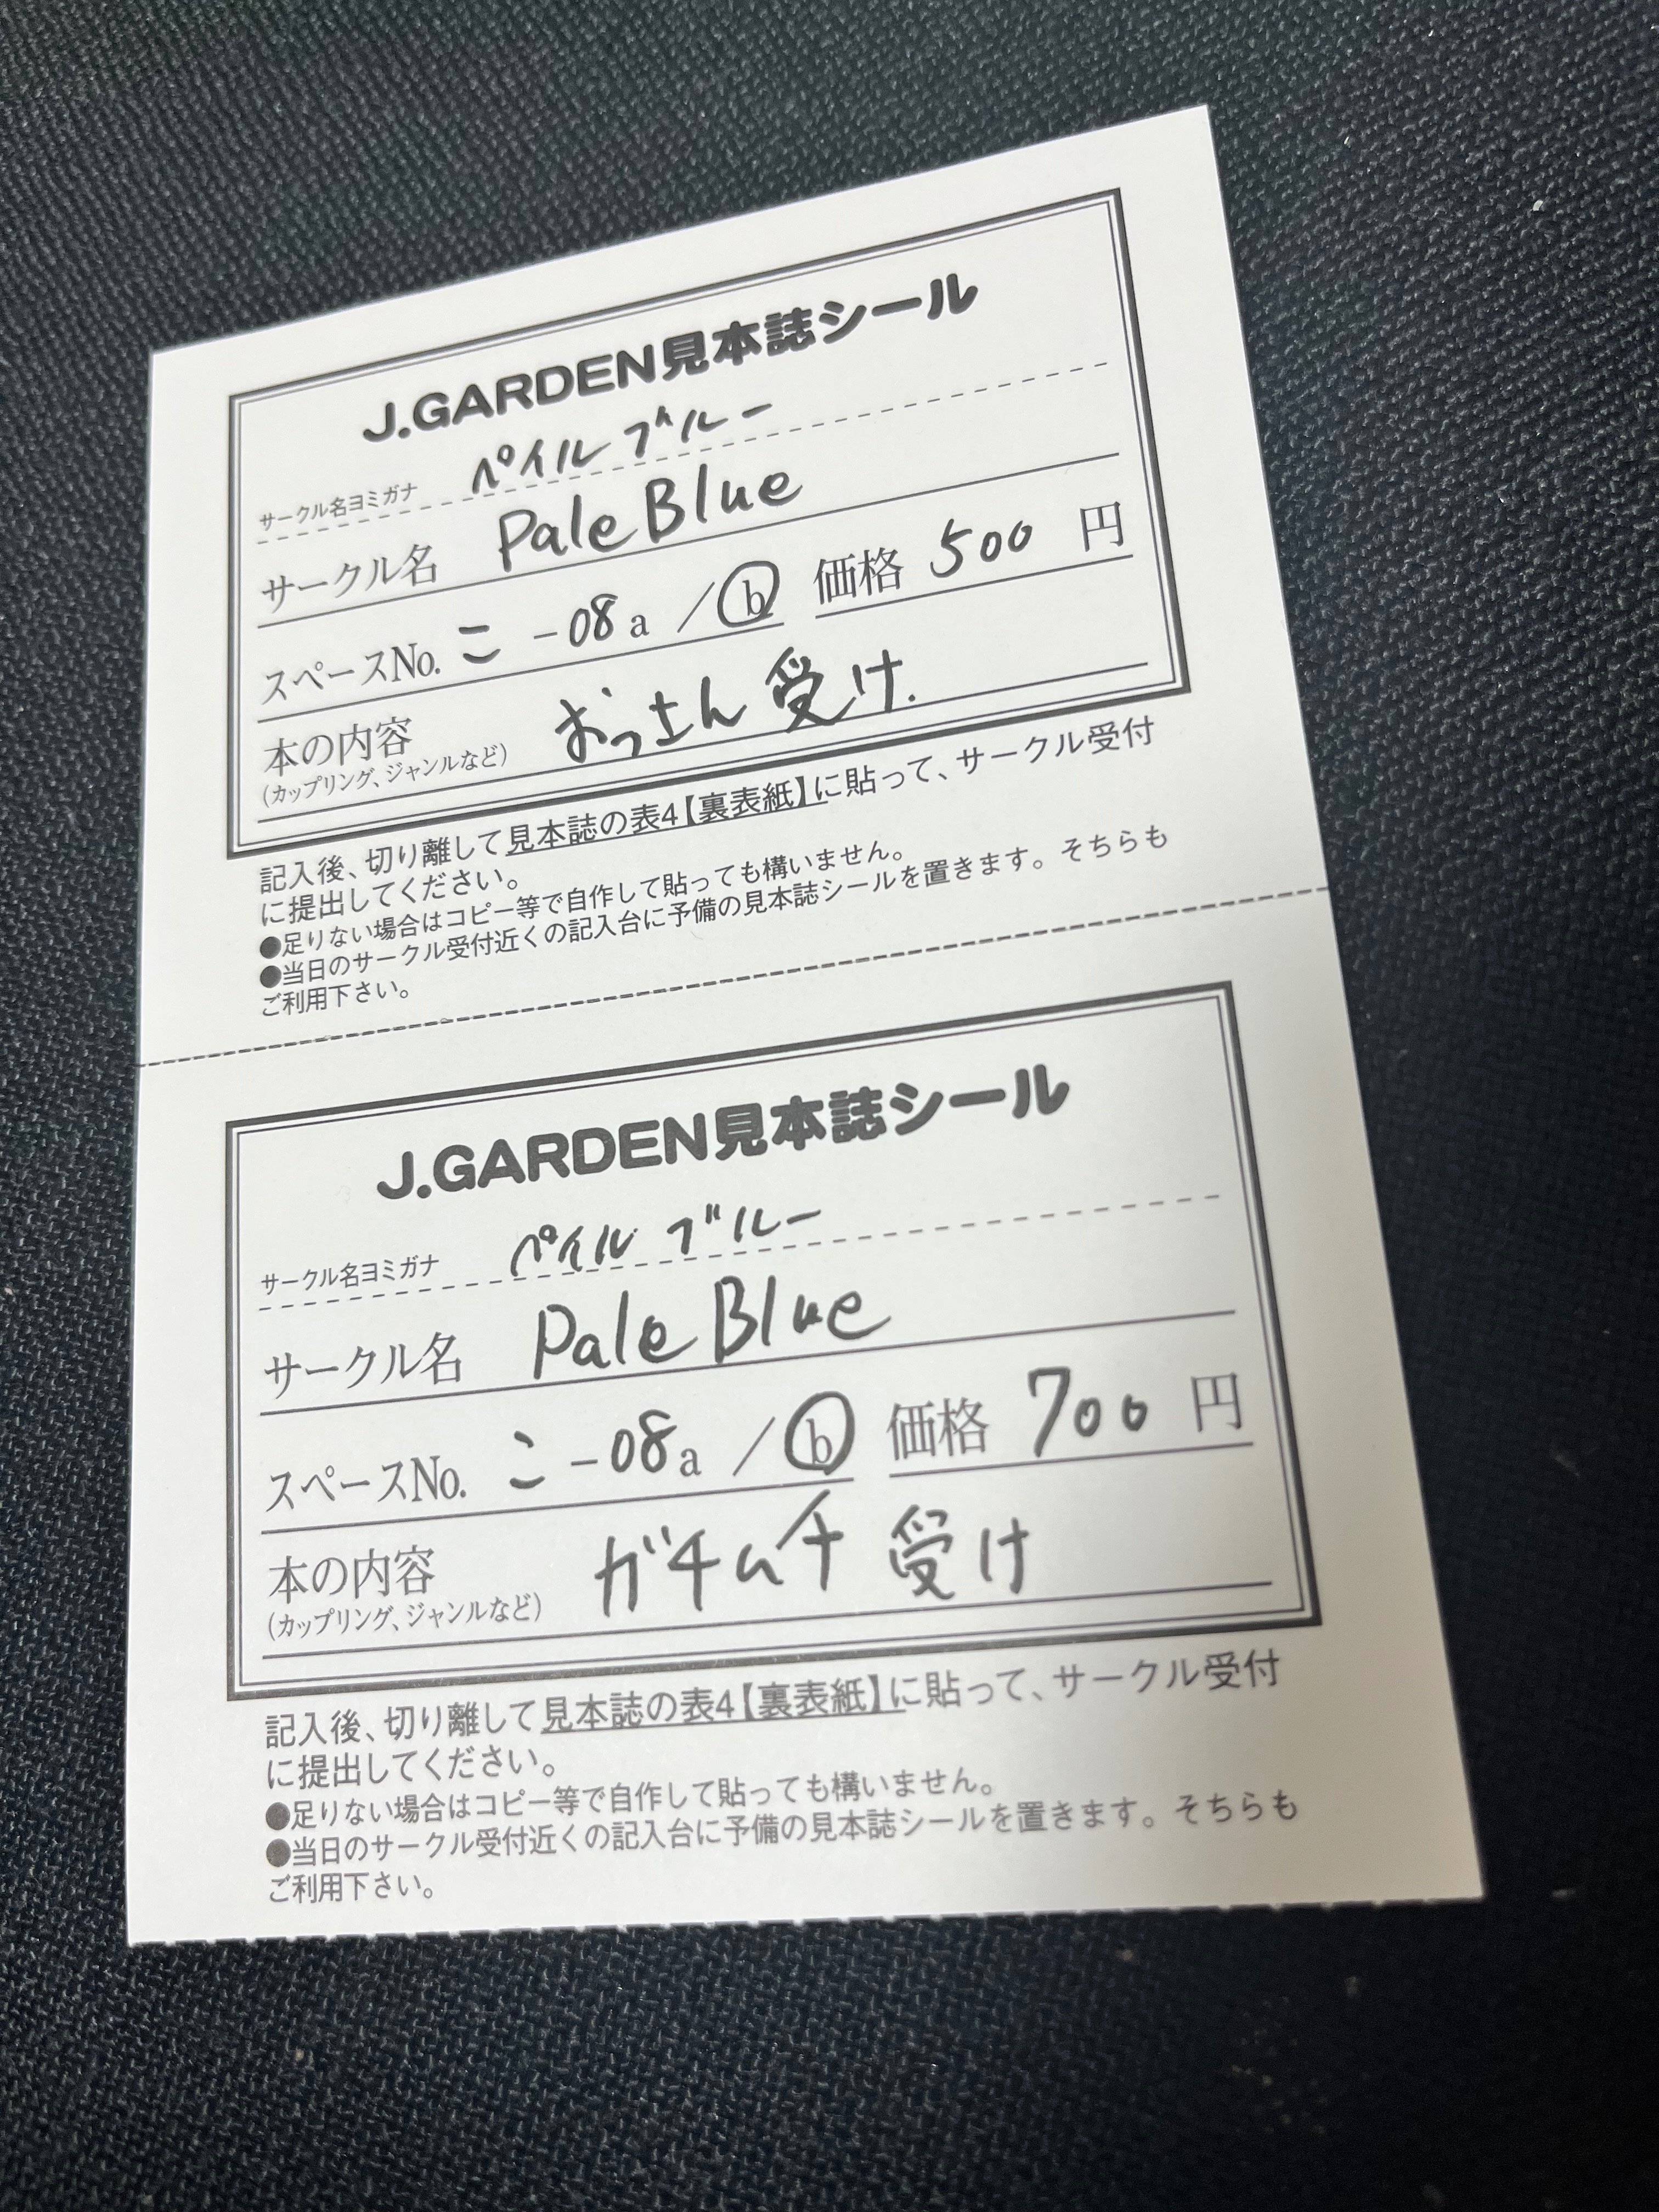 J.GARDEN見本誌シール
サークル名ヨミガナ ペイルブルー
サークル名 Pale Blue
スペースNo. こ -08 a / b 価格 500 円
本の内容 おっさん受け.
(カップリング、ジャンルなど)
記入後、切り離して見本誌の表4【裏表紙】に貼って、サークル受付
に提出してください。
●足りない場合はコピー等で自作して貼っても構いません。
●当日のサークル受付近くの記入台に予備の見本誌シールを置きます。そちらも
ご利用下さい。
J.GARDEN見本誌シール
サークル名ヨミガナ ペイルブルー
サークル名 Pale Blue
スペースNo. こ -08 a / b 価格 700 円
本の内容 ガチムチ受け
(カップリング、ジャンルなど)
記入後、切り離して見本誌の表4【裏表紙】に貼って、サークル受付
に提出してください。
●足りない場合はコピー等で自作して貼っても構いません。
●当日のサークル受付近くの記入台に予備の見本誌シールを置きます。そちらも
ご利用下さい。